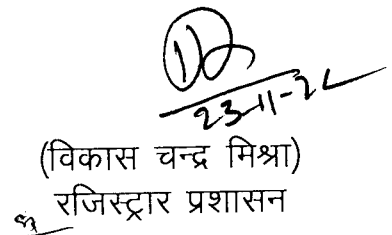 23-11-22
(विकास चन्द्र मिश्रा)
रजिस्ट्रार प्रशासन